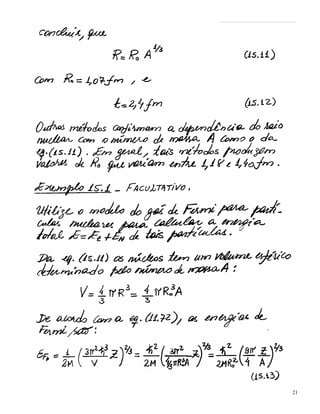 concluir, que
R = R₀ A^1/3 (15.11)
com R₀ = 1,07 fm, e
t = 2,4 fm (15.12)
Outros métodos confirmam a dependência do raio
nuclear com o número de massa A como o da
eq.(15.11). Em geral, tais métodos produzem
valores de R₀ que variam entre 1,18 e 1,40 fm.
Exemplo 15.1 - FACULTATIVO.
Utilize o modelo do gás de Fermi para partí-
culas nucleares para calcular a energia
total E = E_Z + E_N de tais partículas.
Da eq. (15.11) os núcleos tem um volume esférico
determinado pelo número de massa A:
V = 4/3 π R³ = 4/3 π R₀³ A
De acordo com a eq. (11.72), as energias de
Fermi são:
E_F₀ = 1/2M (3π²ħ³/V Z)^2/3 = ħ²/2M (3π²/(4/3 π R₀³ A) Z)^2/3 = ħ²/2MR₀² (9π/4 Z/A)^2/3
(15.13)
21